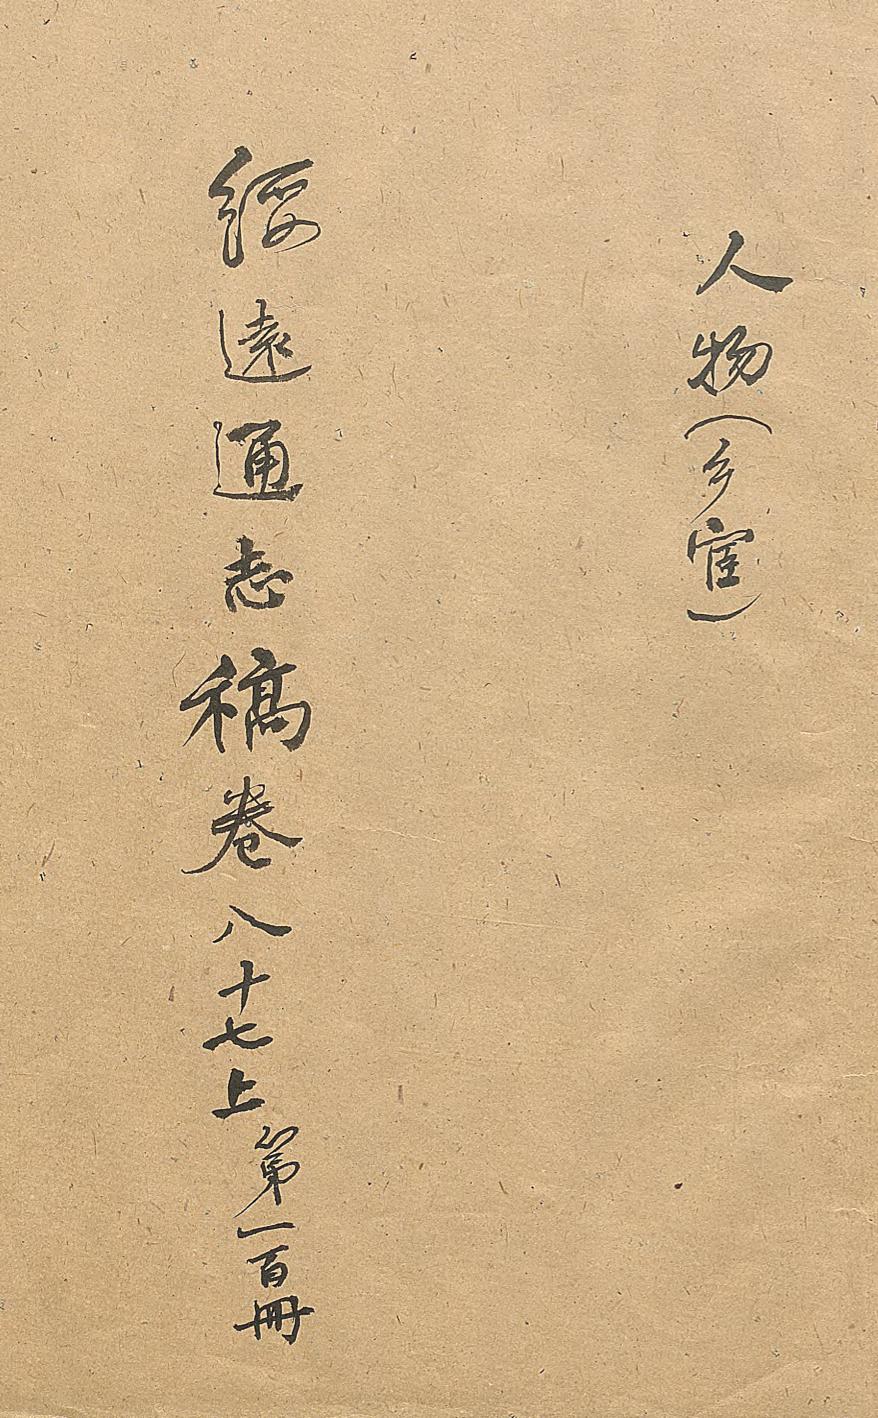 人物（乡宦）
綏遠通志稿卷八十七上第一百冊